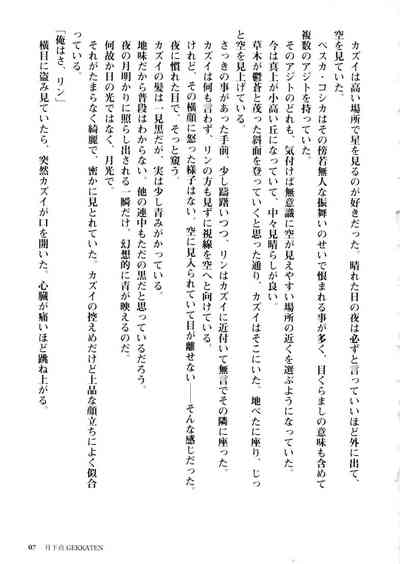 カズイは高い場所で星を見るのが好きだった。晴れた日の夜は必ずと言っていいほど外に出て、
空を見ていた。
ベスカ・コシカはその傍若無人な振舞いのせいで恨まれる事が多く、目くらましの意味も含めて
複数のアジトを持っていた。
そのアジトのどれも、気付けば無意識に空が見えやすい場所の近くを選ぶようになっていた。
今は真上が小高い丘になっていて、中々見晴らしが良い。
草木が鬱蒼と茂った斜面を登っていくと思った通り、カズイはそこにいた。地べたに座り、じっ
と空を見上げている。
さっきの事があった手前、少し躊躇いつつ、リンはカズイに近付いて無言でその隣に座った。
カズイは何も言わず、リンの方も見ずに視線を空へと向けている。
けれど、その横顔に怒った様子はない。空に見入られていて目が離せない――そんな感じだった。
夜に慣れた目で、そっと窺う。
カズイの髪は一見黒だが、実は少し青みがかっている。
地味だから普段はわからない。他の連中もただの黒だと思っているだろう。
夜の月明かりに照らし出される一瞬だけ、幻想的に青が映えるのだ。
何故か日の光ではなく、月光で。
それがたまらなく綺麗で、密かに見とれていた。カズイの控えめだけど上品な顔立ちによく似合
っている。
「俺はさ、リン」
横目に盗み見ていたら、突然カズイが口を開いた。心臓が痛いほど跳ね上がる。
07 月下点 GEKKATEN